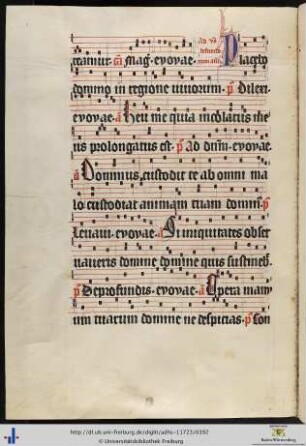 Ad vs
defuncto
rum añ.
Placebo
tamur. c̄a Mag̃. evovae.
domino in regione vivorum. p̄ Dilexi.
evovae. a Heu me quia incolatus me
us prolongatus est. p̄ Ad dn̄m. evovae.
a Dominus custodit te ab omni ma
lo custodiat animam tuam domin⁹. p̄
Levavi. evovae. a Si iniquitates obser
vaveris domine domine quis sustineb̄.
p̄ De profundis. evovae. a Opera manu
um tuarum domine ne despicias. p̄ Con
http://dl.ub.uni-freiburg.de/diglit/adhs-11723/0392
© Universitätsbibliothek Freiburg